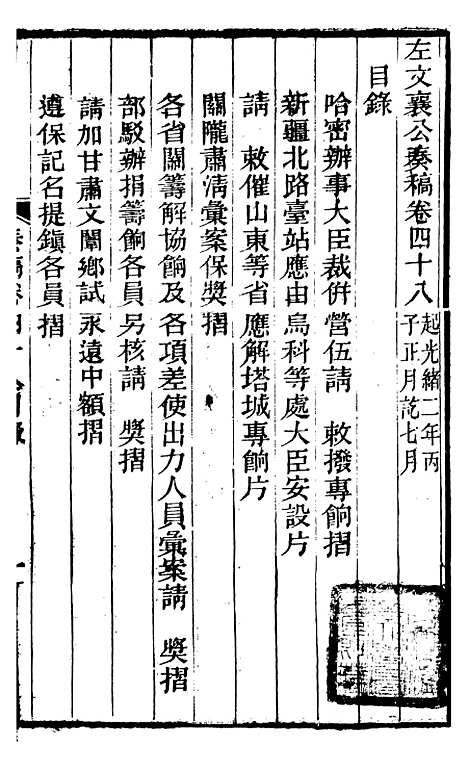 左文襄公奏稿卷四十八 起光緒二年丙子正月訖七月
目錄
哈密辦事大臣裁併營伍請 敕撥專餉摺
新疆北路臺站應由烏科等處大臣安設片
請 敕催山東等省應解塔城專餉片
關隴肅淸彙案保獎摺
各省關籌解協餉及各項差使出力人員彙案請 獎摺
部駁辦捐籌餉各員另核請 獎摺
請加甘肅文闈鄉試永遠中額摺
遵保記名提鎭各員摺